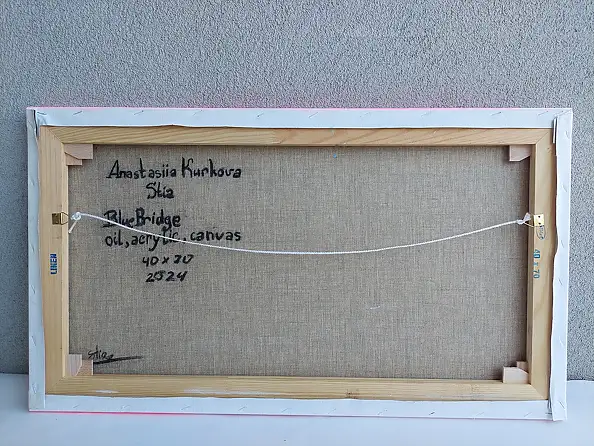 Anastasiia Kurkova
Stia
Blue Bridge
oil, acrylic, canvas
40 x 70
2024
Stia
LINEN
40 x 70